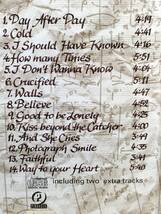 1. Day After Day 4:19
2. Cold 4:41
3. I Should Have Known 4:16
4. How many Times 5:51
5. I Don't Wanna Know 4:04
6. Crucified 5:11
7. Walls 4:47
8. Believe 4:52
9. Good to be Lonely 4:25
10. Kiss beyond the Catcher 4:40
11. And She Cries 5:29
12. Photograph Smile 4:35
13. Faithful 5:44
14. Way to your Heart 5:40
including two extra tracks